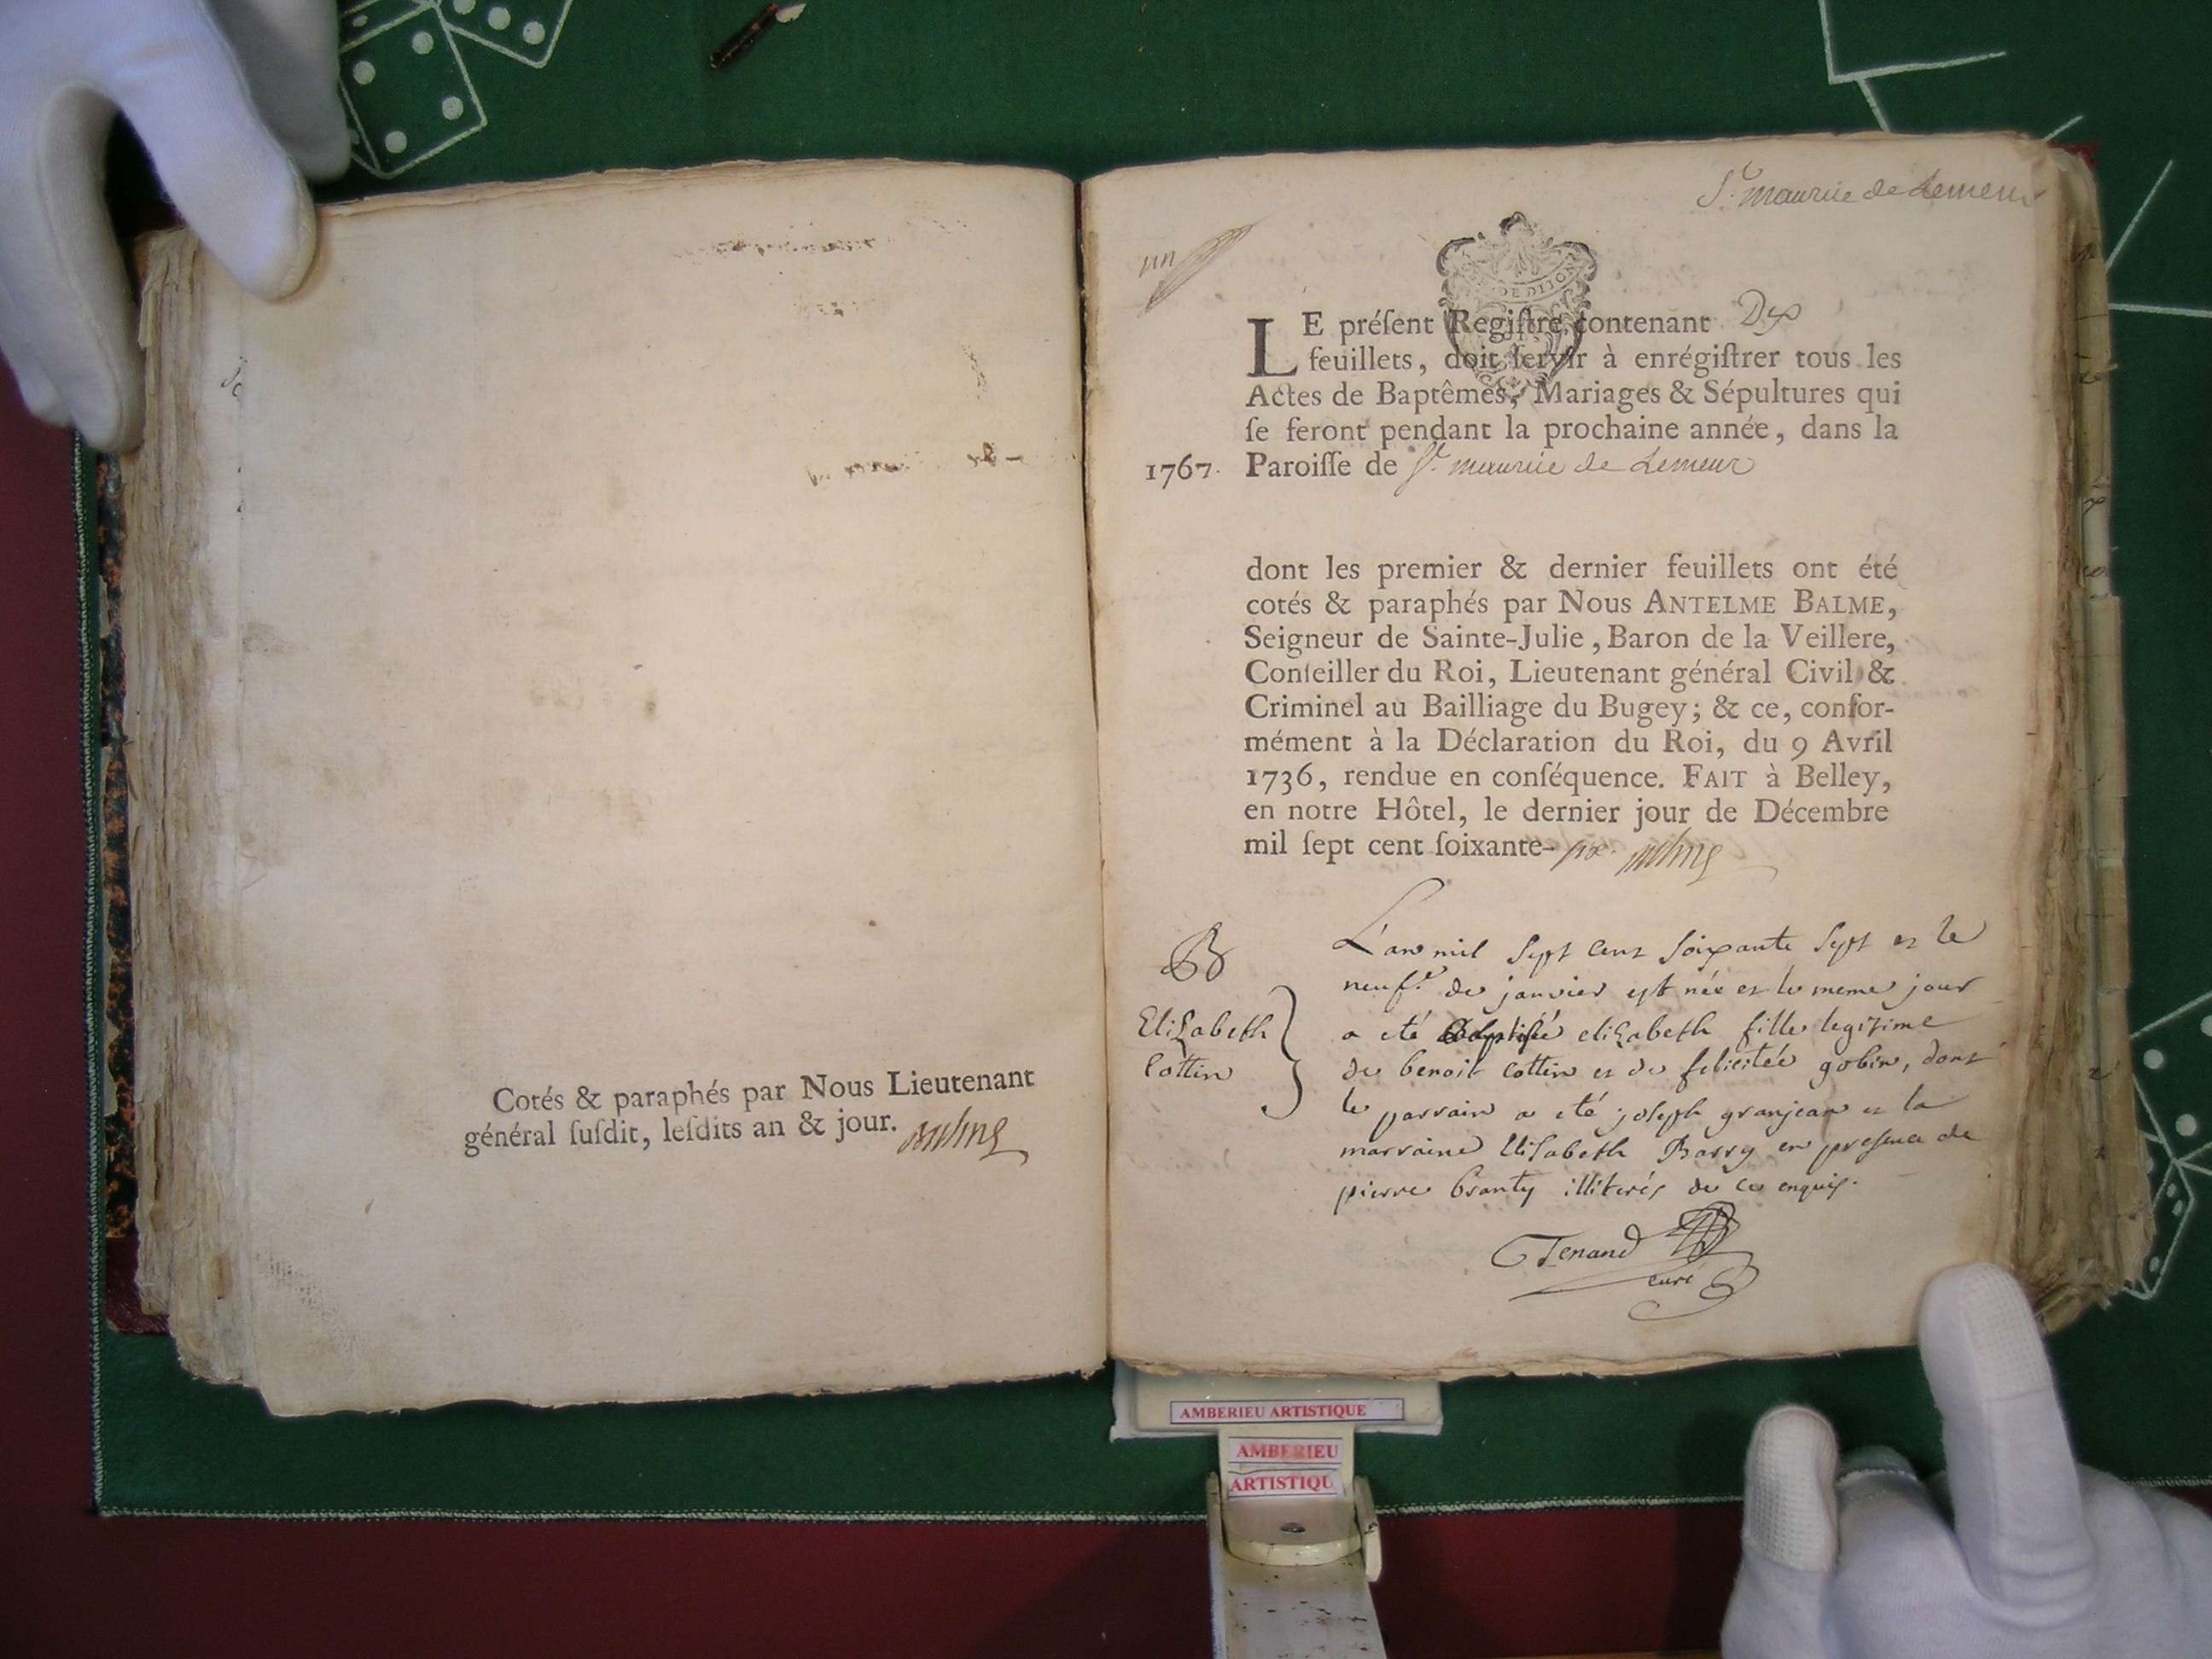 Cotés & paraphés par Nous Lieutenant
général ſuſdit, leſdits an & jour.
St. maurice de Remens
un
DE DIJON
LE préſent Regiſtre, contenant Dix
feuillets, doit ſervir à enrégiſtrer tous les
Actes de Baptêmes, Mariages & Sépultures qui
ſe feront pendant la prochaine année, dans la
1767. Paroiſſe de St. maurice de Remens
dont les premier & dernier feuillets ont été
cotés & paraphés par Nous ANTELME BALME,
Seigneur de Sainte-Julie, Baron de la Veillere,
Conſeiller du Roi, Lieutenant général Civil &
Criminel au Bailliage du Bugey; & ce, confor-
mément à la Déclaration du Roi, du 9 Avril
1736, rendue en conſéquence. FAIT à Belley,
en notre Hôtel, le dernier jour de Décembre
mil ſept cent ſoixante-six.
B
Elisabeth
Cottin
L'an mil sept cent soixante sept et le
neufe de janvier est née et le meme jour
a eté baptisée elizabeth fille legitime
de benoit cottin et de felicitée gobin, dont
le parrain a eté joseph granjean et la
marraine Elisabeth Barry en presence de
pierre branty illiterés de ce enquis.
Tenand
curé
AMBERIEU ARTISTIQUE
AMBERIEU
ARTISTIQU